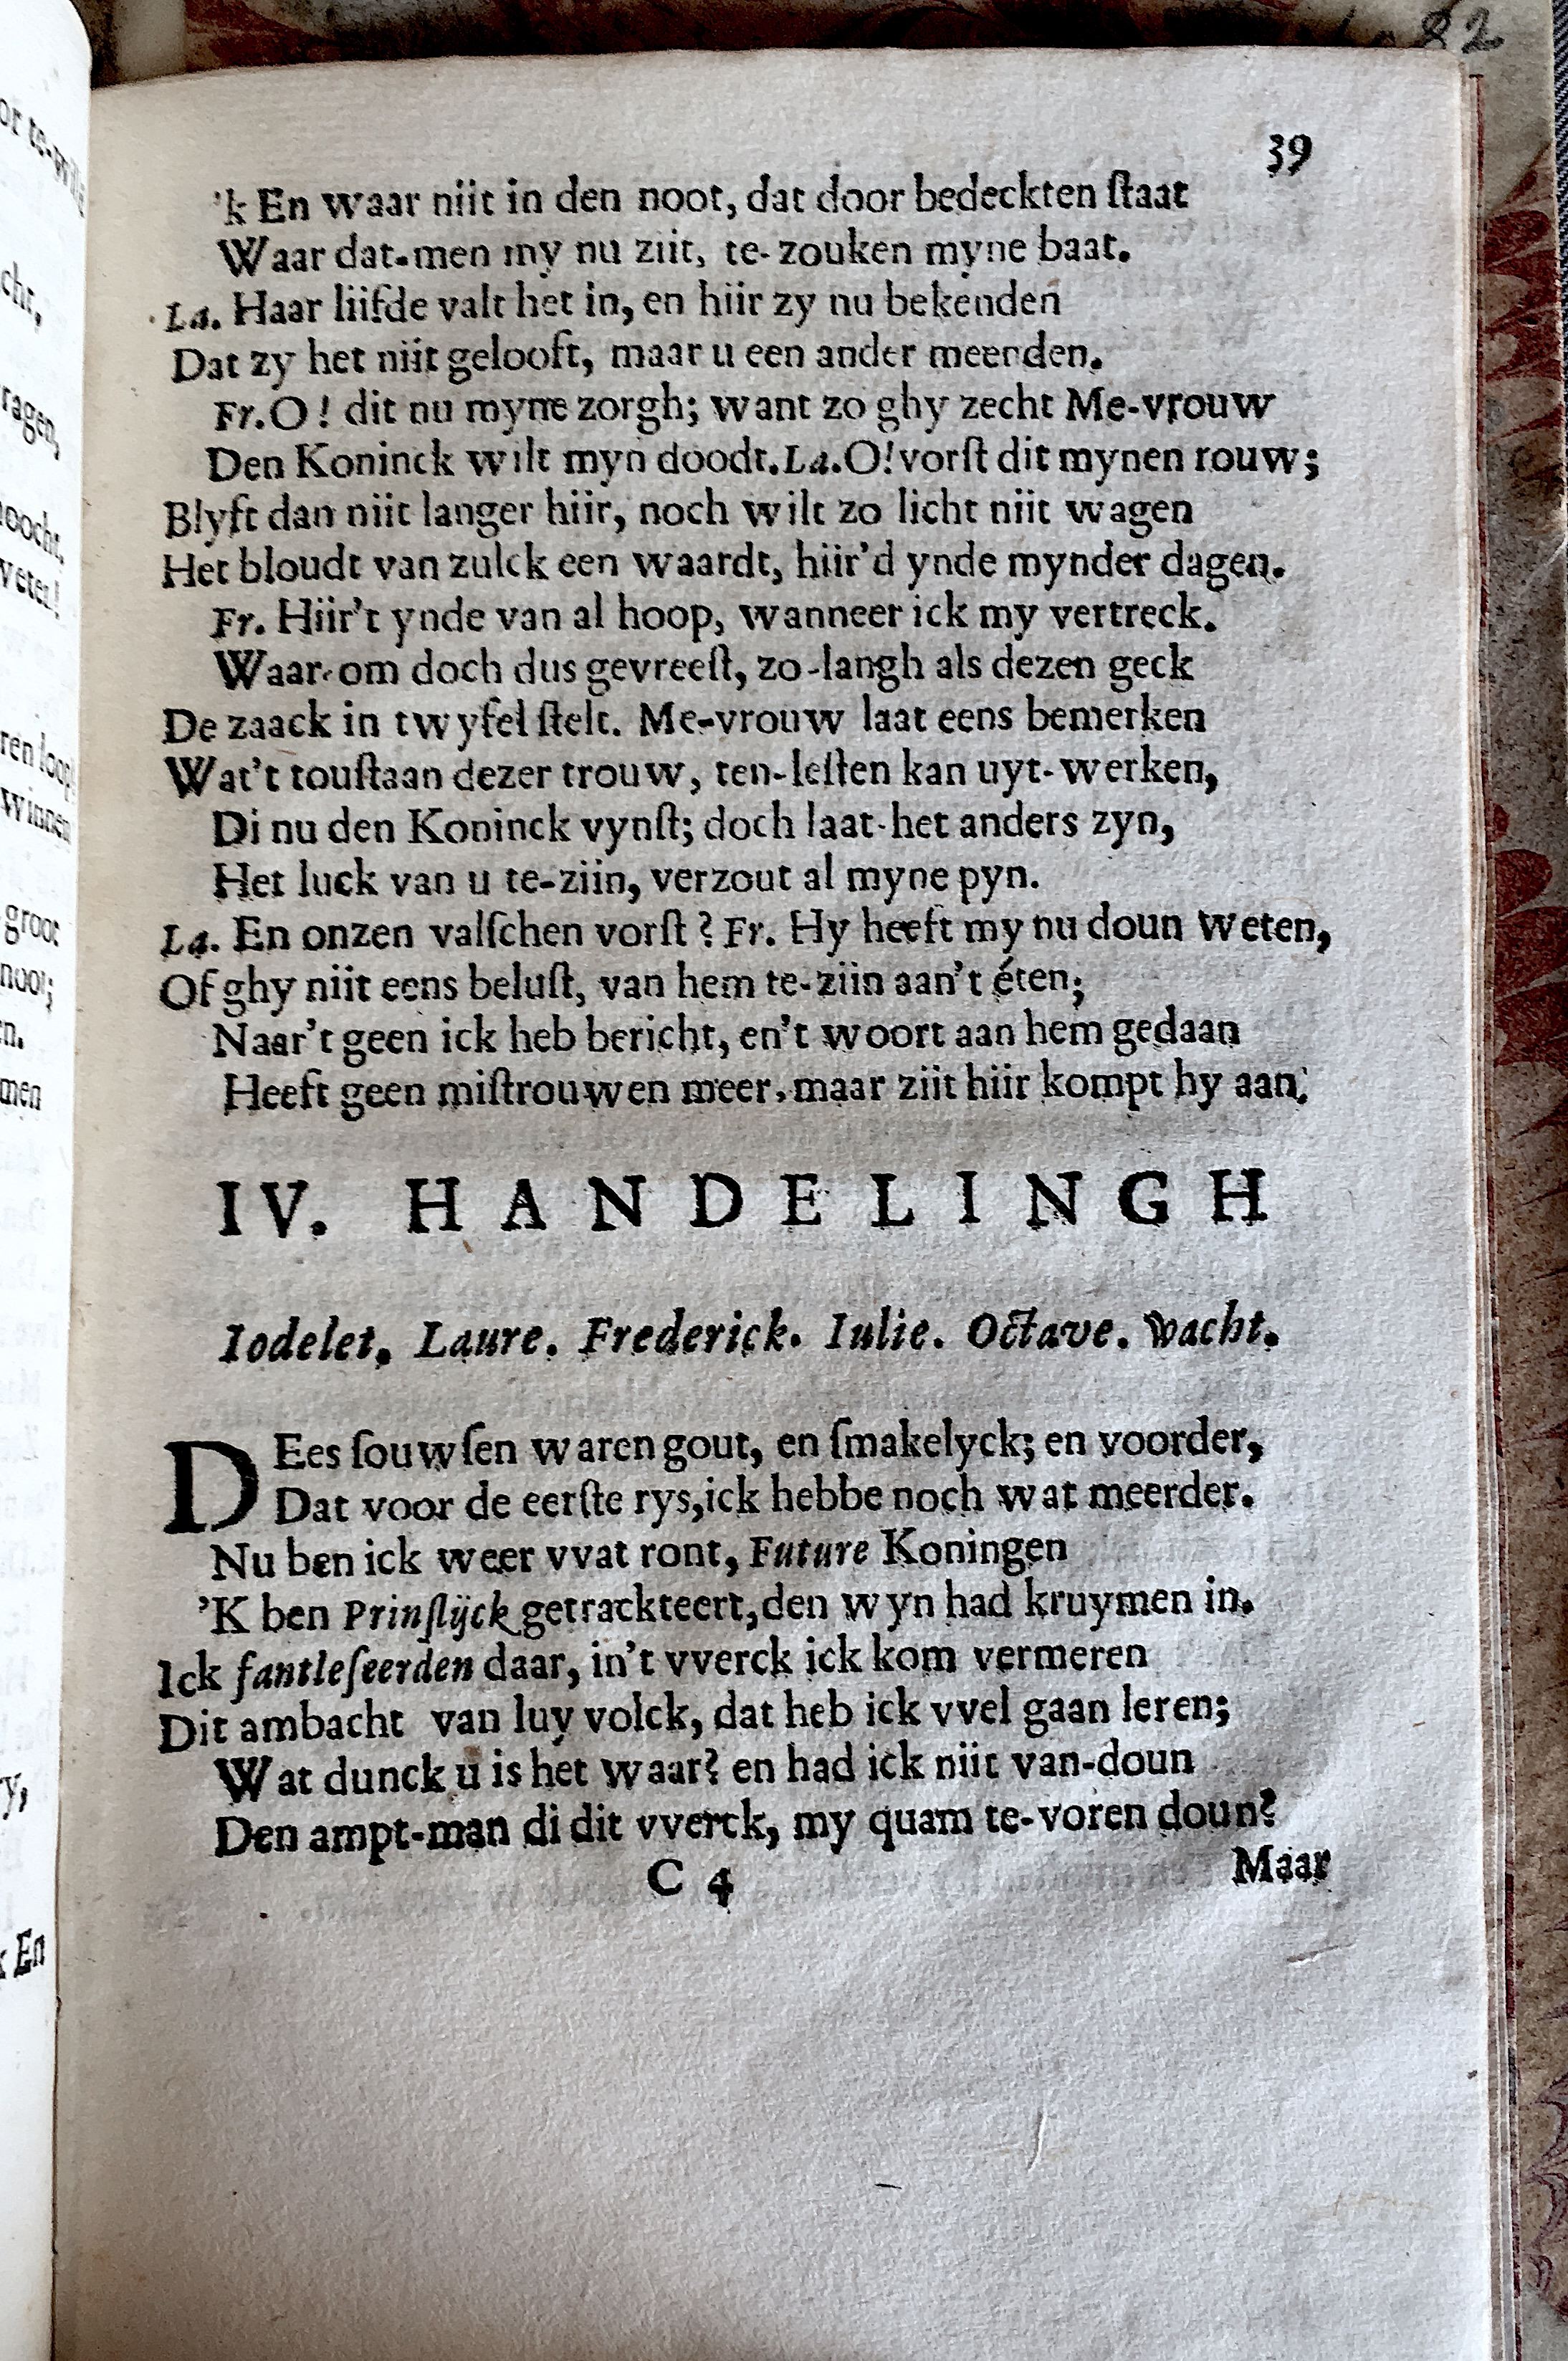 82
39
'k En waar niit in den noot, dat door bedeckten ſtaat
Waar dat-men my nu ziit, te-zouken myne baat.
La. Haar liifde valt het in, en hiir zy nu bekenden
Dat zy het niit gelooft, maar u een ander meenden.
Fr. O! dit nu myne zorgh; want zo ghy zecht Me-vrouw
Den Koninck wilt myn doodt. La. O! vorſt dit mynen rouw;
Blyft dan niit langer hiir, noch wilt zo licht niit wagen
Het bloudt van zulck een waardt, hiir'd ynde mynder dagen.
Fr. Hiir't ynde van al hoop, wanneer ick my vertreck.
Waar-om doch dus gevreeſt, zo-langh als dezen geck
De zaack in twyfel ſtelt. Me-vrouw laat eens bemerken
Wat't touſtaan dezer trouw, ten-leſten kan uyt-werken,
Di nu den Koninck vynſt; doch laat-het anders zyn,
Het luck van u te-ziin, verzout al myne pyn.
La. En onzen valſchen vorſt? Fr. Hy heeft my nu doun weten,
Of ghy niit eens beluſt, van hem te-ziin aan't éten;
Naar't geen ick heb bericht, en't woort aan hem gedaan
Heeft geen miſtrouwen meer, maar ziit hiir kompt hy aan.
IV. HANDELINGH
Iodelet. Laure. Frederick. Iulie. Octave. Wacht.
DEes ſouwſen waren gout, en ſmakelyck; en voorder,
Dat voor de eerſte rys, ick hebbe noch wat meerder.
Nu ben ick weer vvat ront, Future Koningen
'K ben Prinſlijck getrackteert, den wyn had kruymen in.
Ick fantleſeerden daar, in't vverck ick kom vermeren
Dit ambacht van luy volck, dat heb ick vvel gaan leren;
Wat dunck u is het waar? en had ick niit van-doun
Den ampt-man di dit vverck, my quam te-voren doun?
C 4
Maar